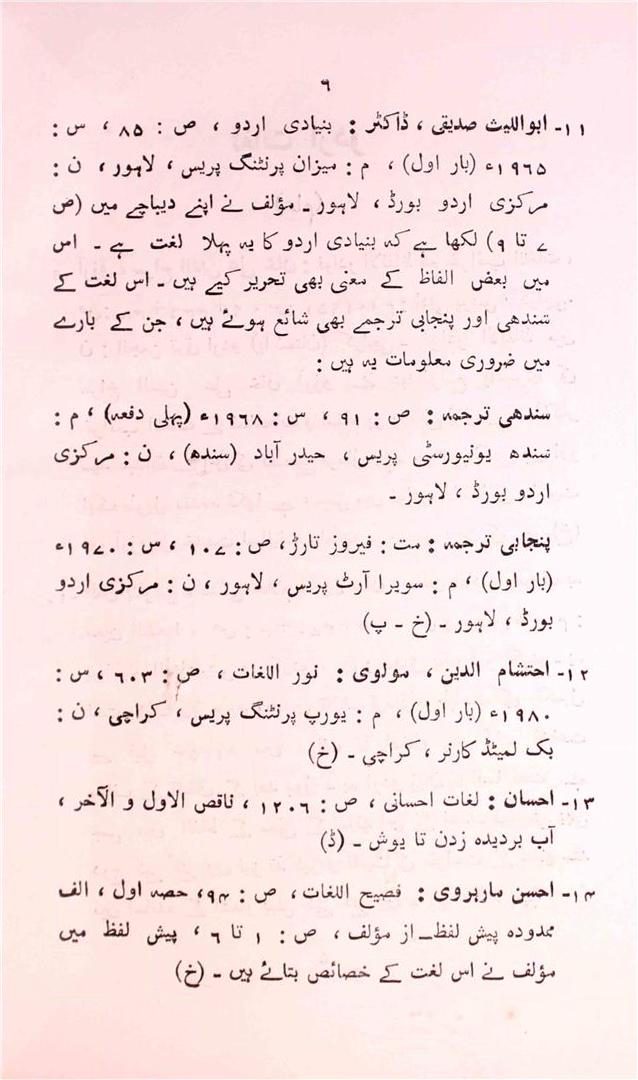 ۶
۱۱۔ ابواللیث صدیقی ، ڈاکٹر : بنیادی اردو ، ص : ۸۵ ، س :
۱۹۶۵ء (بار اول) ، م : میزان پرنٹنگ پریس ، لاہور ، ن :
مرکزی اردو بورڈ ، لاہور ۔ مؤلف نے اپنے دیباچے میں (ص
۷ تا ۹) لکھا ہے کہ بنیادی اردو کا یہ پہلا لغت ہے ۔ اس
میں بعض الفاظ کے معنی بھی تحریر کیے ہیں ۔ اس لغت کے
سندھی اور پنجابی ترجمے بھی شائع ہوئے ہیں ، جن کے بارے
میں ضروری معلومات یہ ہیں :
سندھی ترجمہ : ص : ۹۱ ، س : ۱۹۶۸ء (پہلی دفعہ) ، م :
سندھ یونیورسٹی پریس ، حیدر آباد (سندھ) ، ن : مرکزی
اردو بورڈ ، لاہور ۔
پنجابی ترجمہ : مت : فیروز تارڑ ، ص : ۱۰۷ ، س : ۱۹۷۰ء
(بار اول) ، م : سویرا آرٹ پریس ، لاہور ، ن : مرکزی اردو
بورڈ ، لاہور ۔ (خ ۔ پ)
۱۲۔ احتشام الدین ، مولوی : نور اللغات ، ص : ۶۰۳ ، س :
۱۹۸۰ء (بار اول) ، م : یورپ پرنٹنگ پریس ، کراچی ، ن :
بک لمیٹڈ کارنر ، کراچی ۔ (خ)
۱۳۔ احسان : لغات احسانی ، ص : ۱۲۰۶ ، ناقص الاول و الآخر ،
آب بردیدہ زدن تا یوش ۔ (ڈ)
۱۴۔ احسن مارہروی : فصیح اللغات ، ص : ۹۴ ، حصہ اول ، الف
ممدودہ پیش لفظ ــ از مؤلف ، ص : ۱ تا ۶ ، پیش لفظ میں
مؤلف نے اس لغت کے خصائص بتائے ہیں ۔ (خ)